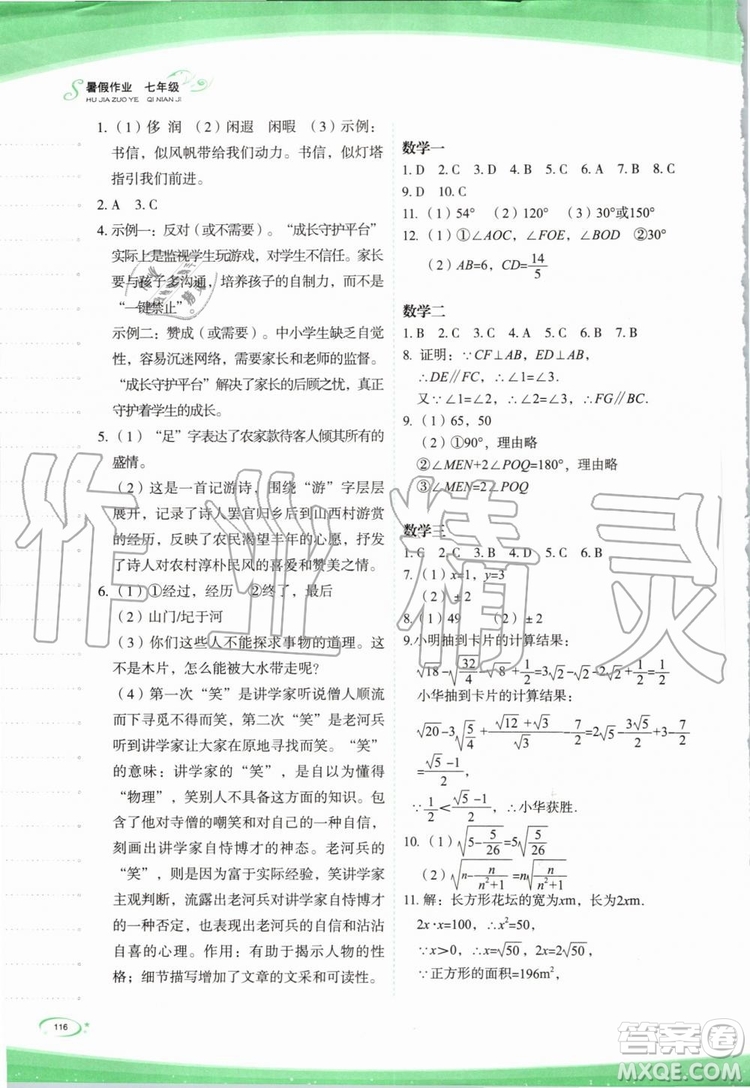 暑假作业 七年级
HU JIA ZUO YE QI NIAN JI
1.（1）侈 润 （2）闲遐 闲暇 （3）示例：
书信，似风帆带给我们动力。书信，似灯塔
指引我们前进。
2. A 3. C
4. 示例一：反对（或不需要）。“成长守护平台”
实际上是监视学生玩游戏，对学生不信任。家长
要与孩子多沟通，培养孩子的自制力，而不是
“一键禁止”
示例二：赞成（或需要）。中小学生缺乏自觉
性，容易沉迷网络，需要家长和老师的监督。
“成长守护平台”解决了家长的后顾之忧，真正
守护着学生的成长。
5.（1）“足”字表达了农家款待客人倾其所有的
盛情。
（2）这是一首记游诗，围绕“游”字层层
展开，记录了诗人罢官归乡后到山西村游赏
的经历，反映了农民渴望丰年的心愿，抒发
了诗人对农村淳朴民风的喜爱和赞美之情。
6.（1）①经过，经历 ②终了，最后
（2）山门/圮于河
（3）你们这些人不能探求事物的道理。这
不是木片，怎么能被大水带走呢？
（4）第一次“笑”是讲学家听说僧人顺流
而下寻觅不得而笑。第二次“笑”是老河兵
听到讲学家让大家在原地寻找而笑。“笑”
的意味：讲学家的“笑”，是自恃了解
“物理”，笑别人不具备这方面的知识。不仅
包含了他对寺僧的嘲笑和对自己的夸耀，还
刻画出讲学家自恃博才的神态。老河兵的
“笑”，则是源于实际经验，笑讲学家的
主观判断，流露出老河兵对讲学家自恃博才
的一种否定，也表现出老河兵的自信和沾沾
自喜的心理。作用：有助于揭示人物的性
格；细节描写增加了文章的文采和可读性。
116
数学一
1. D 2. C 3. D 4. B 5. C 6. A 7. B 8. C
9. D 10. C
11.（1）54° （2）120° （3）30°或150°
12.（1）①∠AOC，∠FOE，∠BOD ②30°
（2）AB=6，CD=14/5
数学二
1. B 2. C 3. D 4. C 5. C 6. C 7. B
8. 证明：∵CF⊥AB，ED⊥AB，
∴DE∥FC，∴∠1=∠3.
又∵∠1=∠2，∴∠2=∠3，∴FG∥BC.
9.（1）65，50
（2）①90°，理由略
②∠MEN+2∠POQ=180°，理由略
③∠MEN=2∠POQ
数学三
1. C 2. C 3. C 4. D 5. C 6. B
7.（1）x=1，y=3
（2）±2
8.（1）49 （2）±2
9.小明抽到卡片的计算结果：
√18-√(32/4)-√8+1/2=3√2-√2-2√2+1/2=1/2
小华抽到卡片的计算结果：
√20-3√(5/4)+(√12+√3)/√3-7/2=2√5-3√5/2+3-7/2
=(√5-1)/2，
∵1/2<(√5-1)/2，∴小华获胜.
10.（1）√(5-5/26)=5√(5/26)
（2）√(n-n/(n²+1))=n√(n/(n²+1))
11. 解：长方形花坛的宽为xm，长为2xm.
2x·x=100，∴x²=50，
∵x＞0，∴x=√50，2x=2√50，
∵正方形的面积=196m²，
作业精灵
答案圈
MXQE.COM